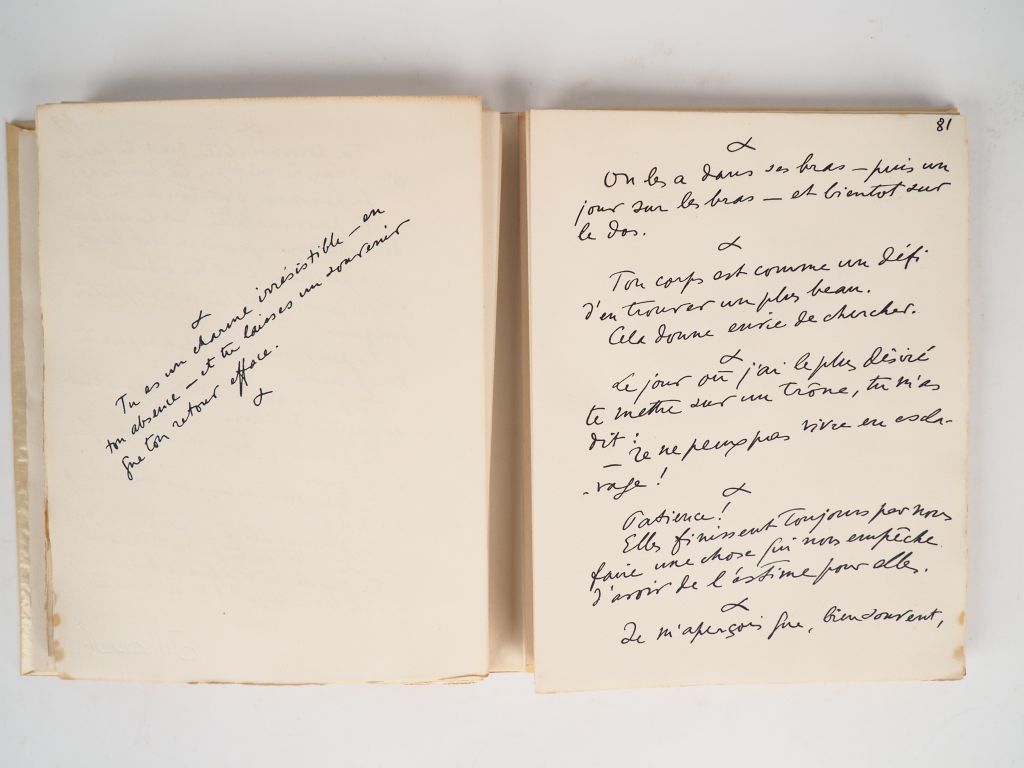 Tu es un charme irrésistible – en
ton absence – et tu laisses un souvenir
que ton retour efface.
81
On les a dans ses bras – puis un
jour sur les bras – et bientôt sur
le dos.
Ton corps est comme un défi
d'en trouver un plus beau.
Cela donne envie de chercher.
Le jour où j'ai le plus désiré
te mettre sur un trône, tu m'as
dit :
– Je ne peux pas vivre en escla-
-vage !
Patience !
Elles finissent toujours par nous
faire une chose qui nous empêche
d'avoir de l'estime pour elles.
Je m'aperçois que, bien souvent,